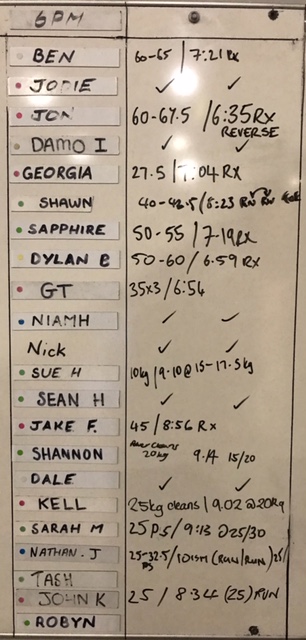 6PM
BEN 60-65 / 7:21 Rx
JODIE ✓ ✓
JON 60-67.5 / 6:35 Rx
REVERSE
DAMO I ✓ ✓
GEORGIA 27.5 / 7:04 Rx
SHAWN 40-42.5 / 8:23
SAPPHIRE 50-55 / 7.19 Rx
DYLAN B 50-60 / 6.59 Rx
GT 35x3 / 6:54
NIAMH ✓ ✓
Nick ✓ ✓
SUE H 10kg / 9.10 @ 15-17.5kg
SEAN H ✓ ✓
JAKE F. 45 / 8:56 Rx
SHANNON 20kg 9.14 15/20
DALE ✓ ✓
KELL 25kg cleans / 9.02 @ 20kg
SARAH M 25 PS / 9:13 @ 25/30
NATHAN. J 25-32.5 / (RUN/RUN) 25/
PS
TASH
JOHN K 25 / 8.34 (25) RUN
ROBYN